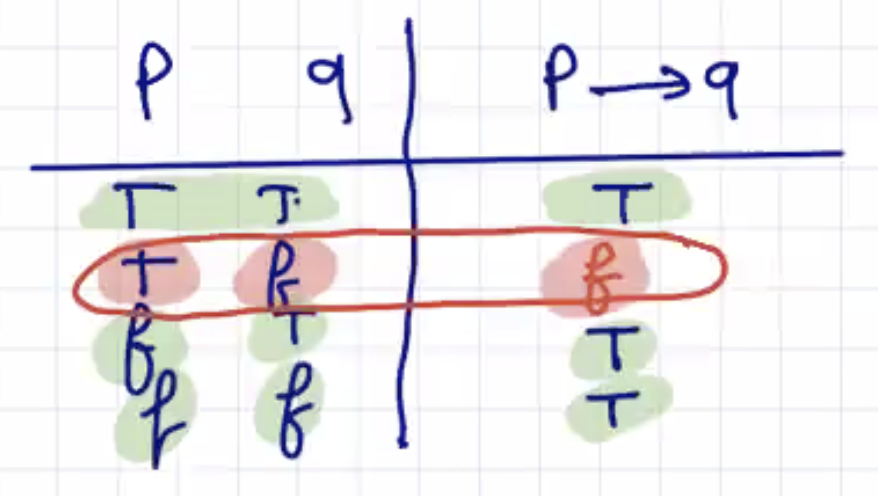 P q P → q
T T T
T f f
f T T
f f T